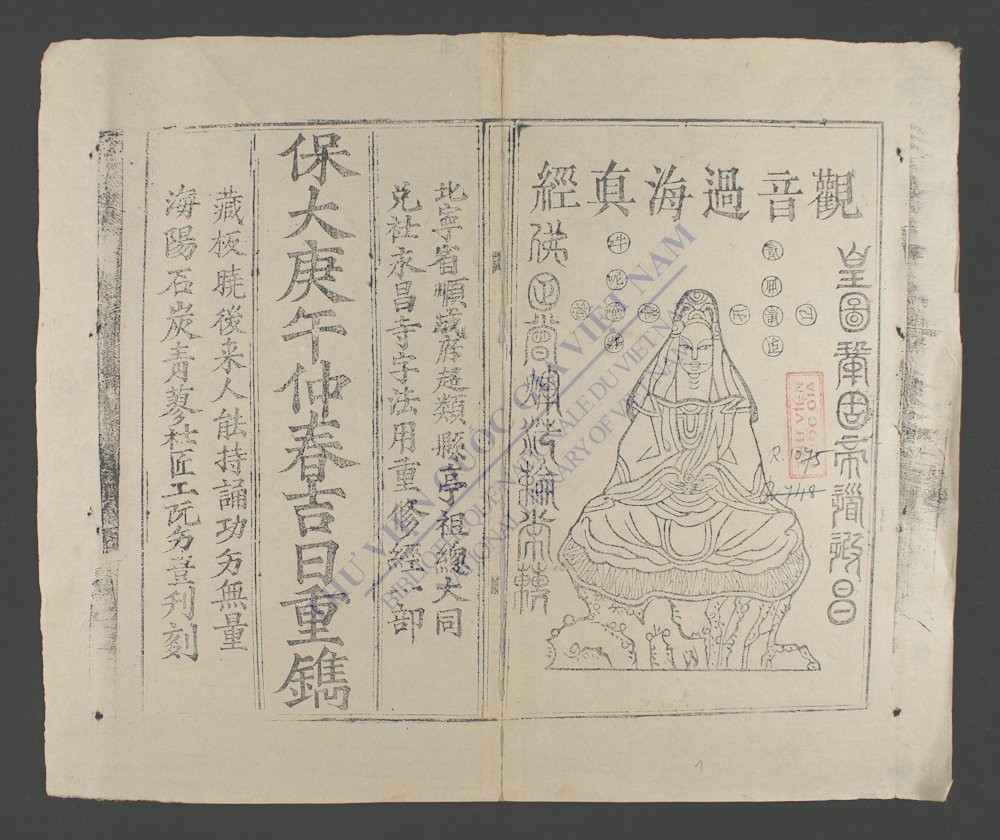 觀音過海真經
皇圖鞏固帝道遐昌
佛日增輝法輪常轉
唵嘛呢叭
北寧省順成府超類縣亭祖總大同
兌社永昌寺字法用重修經一部
保大庚午仲春吉日重鐫
藏板曉後来人能持誦功另無量
海陽石炭青蓼社匠工阮另登刊刻
THƯ VIỆN QUỐC GIA VIỆT NAM
BIBLIOTHÈQUE NATIONALE DU VIETNAM
NATIONAL LIBRARY OF VIETNAM
THƯ VIỆN
QUỐC GIA
R.1075
R.748